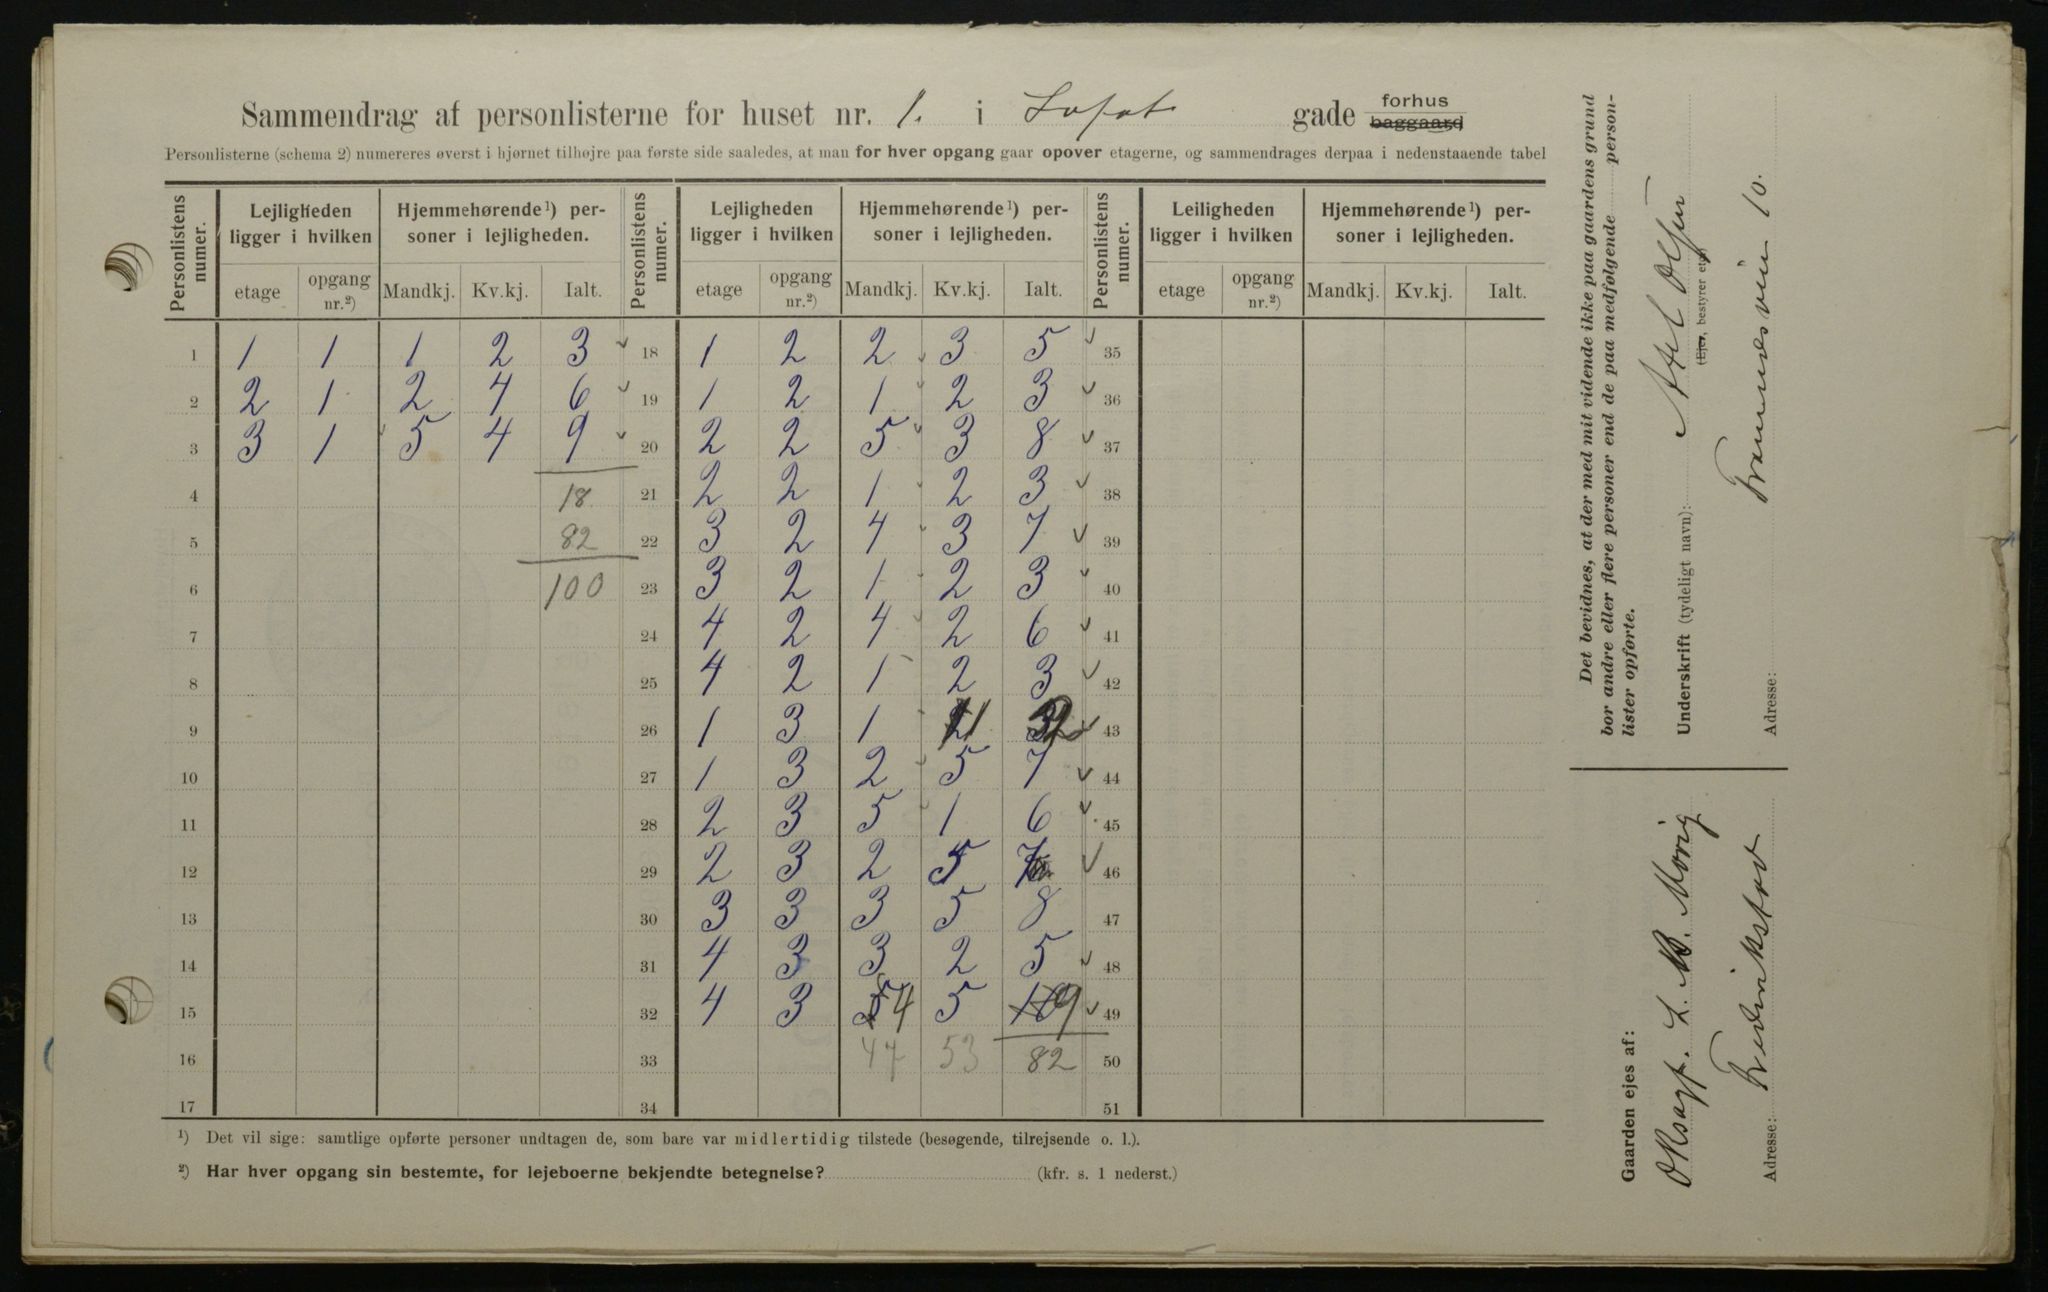 Sammendrag af personlisterne for huset nr. 1. i Lofot gade forhus baggaard
Personlisterne (schema 2) numereres øverst i hjørnet tilhøjre paa første side saaledes, at man for hver opgang gaar opover etagerne, og sammendrages derpaa i nedenstaaende tabel
Personlistens numer. Lejligheden ligger i hvilken Hjemmehørende¹) personer i lejligheden. Personlistens numer. Lejligheden ligger i hvilken Hjemmehørende¹) personer i lejligheden. Personlistens numer. Leiligheden ligger i hvilken Hjemmehørende¹) personer i lejligheden.
etage opgang nr.²) Mandkj. Kv.kj. Ialt. etage opgang nr.²) Mandkj. Kv.kj. Ialt. etage opgang nr.²) Mandkj. Kv.kj. Ialt.
1 1 1 1 2 3 18 1 2 2 3 5 35
2 2 1 2 4 6 19 1 2 1 2 3 36
3 3 1 5 4 9 20 2 2 5 3 8 37
4 18 21 2 2 1 2 3 38
5 82 22 3 2 4 3 7 39
6 100 23 3 2 1 2 3 40
7 24 4 2 4 2 6 41
8 25 4 2 1 2 3 42
9 26 1 3 1 1 2 43
10 27 1 3 2 5 7 44
11 28 2 3 5 1 6 45
12 29 2 3 2 5 7 46
13 30 3 3 3 5 8 47
14 31 4 3 3 2 5 48
15 32 4 3 5 4 5 10 9 49
16 33 47 53 82 50
17 34 51
¹) Det vil sige: samtlige opførte personer undtagen de, som bare var midlertidig tilstede (besøgende, tilrejsende o. l.).
²) Har hver opgang sin bestemte, for lejeboerne bekjendte betegnelse? (kfr. s. 1 nederst.)
Det bevidnes, at der med mit vidende ikke paa gaardens grund
bor andre eller flere personer end de paa medfølgende person-
lister opførte.
Underskrift (tydeligt navn): Axel Olsen
(Ejer, bestyrer etc.)
Adresse: Framnesvein 10.
Gaarden ejes af:
L. B. Morig
Adresse: Fredrikstad